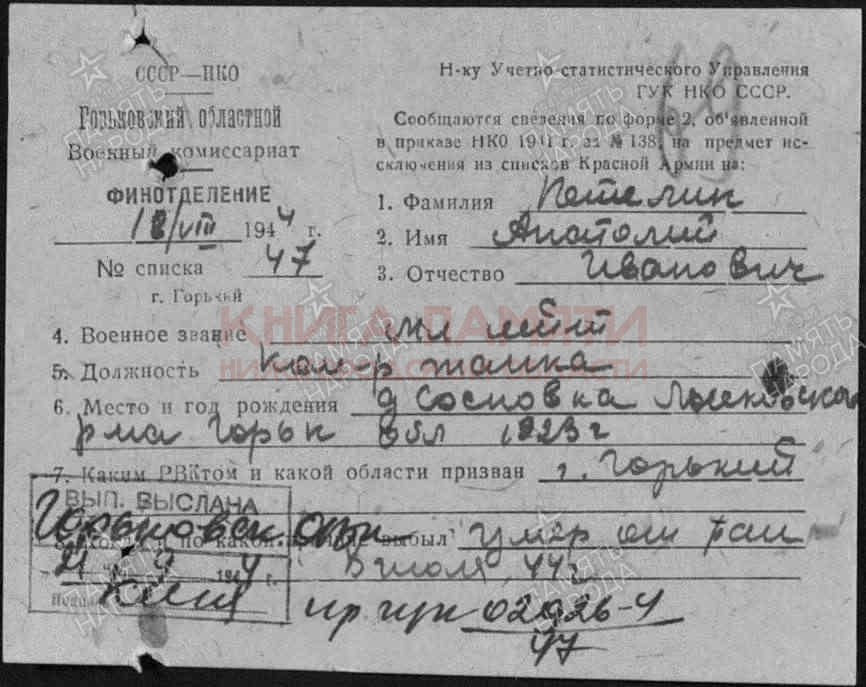 СССР—НКО
Горьковский областной
Военный комиссариат
ФИНОТДЕЛЕНИЕ
18/VIII 1944 г.
№ списка 47
г. Горький
Н-ку Учетно-статистического Управления
ГУК НКО СССР.
Сообщаются сведения по форме 2, об'явленной
в приказе НКО 1941 г. за № 138, на предмет ис-
ключения из списков Красной Армии на:
1. Фамилия Петелин
2. Имя Анатолий
3. Отчество Иванович
4. Военное звание мл лейт
5. Должность ком-р танка
6. Место и год рождения д Сосновка Лысковского
р-на Горьк обл 1923 г
7. Каким РВКтом и какой области призван г. Горький
выбыл умер от ран
в июле 44 г
ВЫП. ВЫСЛАНА
Горьковск
21 9 1944 г.
02926-4
47
69
КНИГА ПАМЯТИ
ПАМЯТЬ НАРОДА